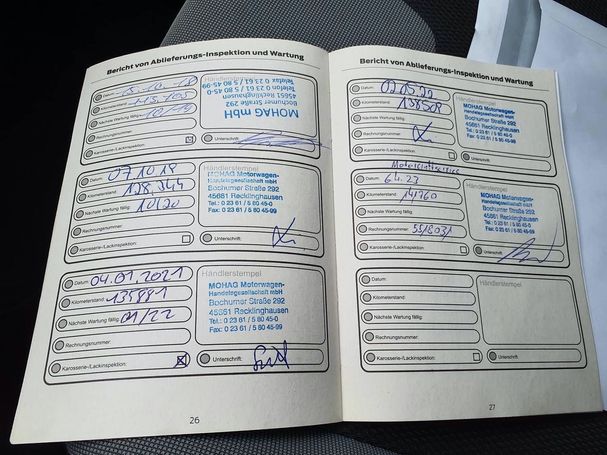 Bericht von Ablieferungs-Inspektion und Wartung
Datum: 15.10.18
Händlerstempel
Kilometerstand:
Nächste Wartung fällig: 10/19
Rechnungsnummer:
Karosserie-/Lackinspektion:
Unterschrift:
MOHAG mbH
Bochumer Straße 292
45661 Recklinghausen
Telefon 0 23 61 / 5 80 45-0
Telefax 0 23 61 / 5 80 45-99
Datum: 07.10.19
Händlerstempel
Kilometerstand: 128.344
Nächste Wartung fällig: 10/20
Rechnungsnummer:
Karosserie-/Lackinspektion:
Unterschrift:
MOHAG Motorwagen-
Handelsgesellschaft mbH
Bochumer Straße 292
45661 Recklinghausen
Tel.: 0 23 61 / 5 80 45-0
Fax: 0 23 61 / 5 80 45-99
Datum: 04.01.2021
Händlerstempel
Kilometerstand: 135881
Nächste Wartung fällig: 01/22
Rechnungsnummer:
Karosserie-/Lackinspektion:
Unterschrift:
MOHAG Motorwagen-
Handelsgesellschaft mbH
Bochumer Straße 292
45661 Recklinghausen
Tel.: 0 23 61 / 5 80 45-0
Fax: 0 23 61 / 5 80 45-99
26
Bericht von Ablieferungs-Inspektion und Wartung
Datum: 02.05.22
Händlerstempel
Kilometerstand: 138508
Nächste Wartung fällig:
Rechnungsnummer:
Karosserie-/Lackinspektion:
Unterschrift:
MOHAG Motorwagen-
Handelsgesellschaft mbH
Bochumer Straße 292
45661 Recklinghausen
Tel.: 0 23 61 / 5 80 45-0
Fax: 0 23 61 / 5 80 45-99
Datum: 6.4.23
Kilometerstand: 141760
Nächste Wartung fällig:
Rechnungsnummer: 55/8031
Karosserie-/Lackinspektion:
Unterschrift:
MOHAG Motorwagen-
Handelsgesellschaft mbH
Bochumer Straße 292
45661 Recklinghausen
Tel.: 0 23 61 / 5 80 45-0
Fax: 0 23 61 / 5 80 45-99
Datum:
Händlerstempel
Kilometerstand:
Nächste Wartung fällig:
Rechnungsnummer:
Karosserie-/Lackinspektion:
Unterschrift:
27